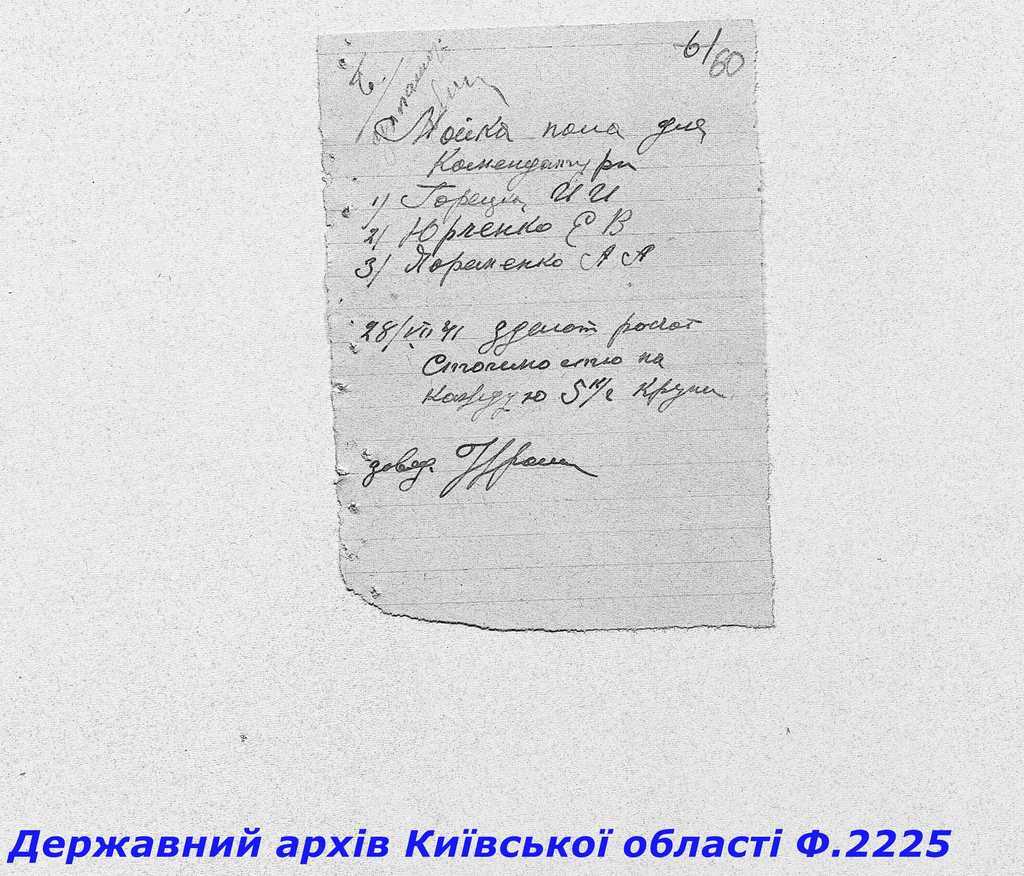 6/
60
Мойка пола для
Комендатури
1) Горецк И И
2) Юрченко Е В
3) Яременко А А
28/VII 41 зделат росчот
Стоимостю на
Каждую 5 к/г Крупи
завед.
Державний архів Київської області Ф.2225